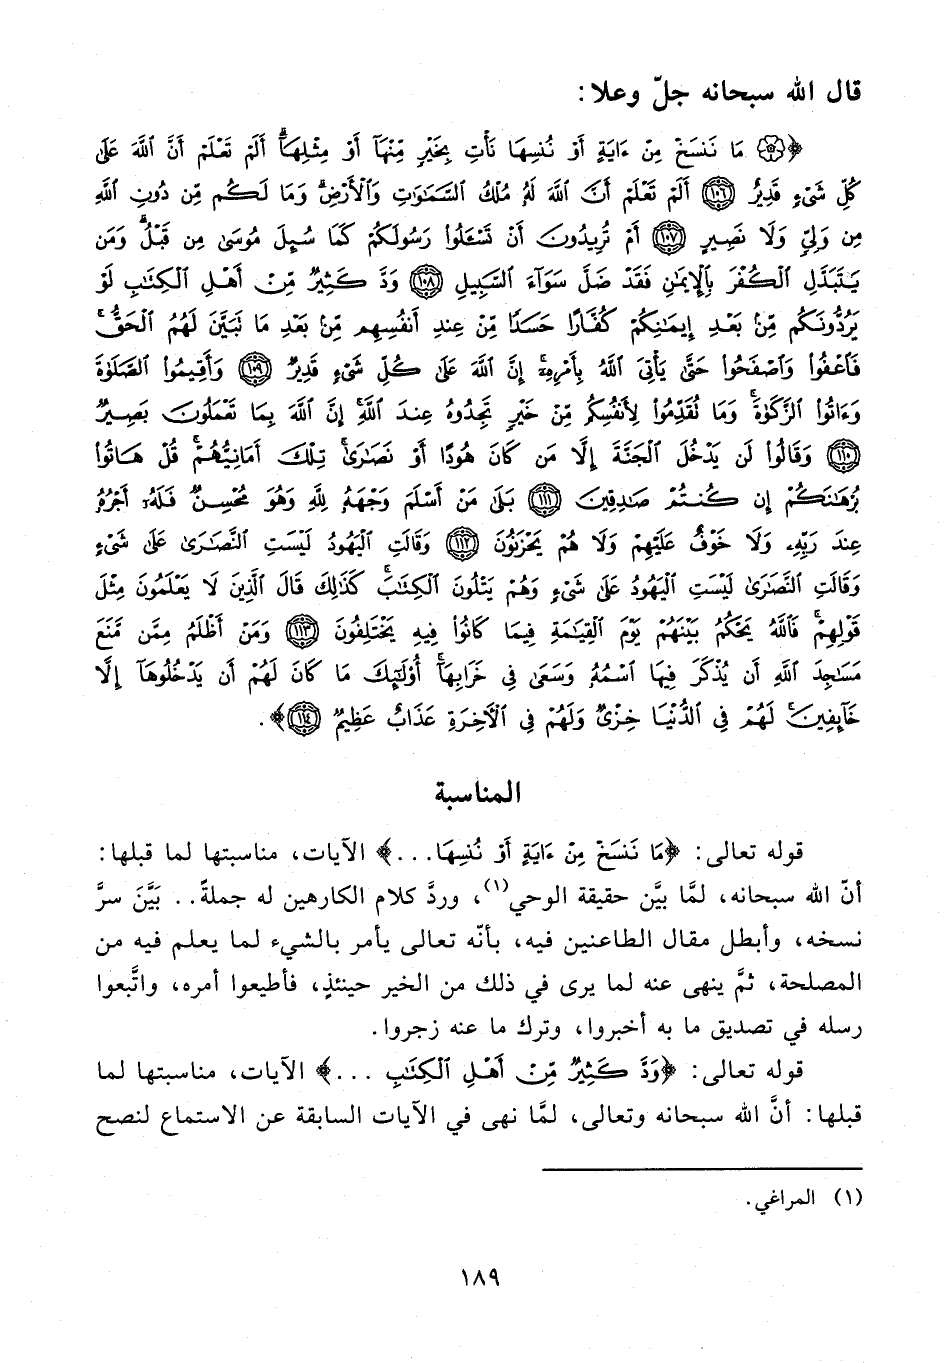 قال الله سبحانه جلّ وعلا:
﴿۞ مَا نَنسَخْ مِنْ ءَايَةٍ أَوْ نُنسِهَا نَأْتِ بِخَيْرٍ مِّنْهَآ أَوْ مِثْلِهَآۗ أَلَمْ تَعْلَمْ أَنَّ ٱللَّهَ عَلَىٰ
كُلِّ شَىْءٍ قَدِيرٌ ﴿١٠٦﴾ أَلَمْ تَعْلَمْ أَنَّ ٱللَّهَ لَهُۥ مُلْكُ ٱلسَّمَٰوَٰتِ وَٱلْأَرْضِۗ وَمَا لَكُم مِّن دُونِ ٱللَّهِ
مِن وَلِىٍّ وَلَا نَصِيرٍ ﴿١٠٧﴾ أَمْ تُرِيدُونَ أَن تَسْـَٔلُوا۟ رَسُولَكُمْ كَمَا سُئِلَ مُوسَىٰ مِن قَبْلُۗ وَمَن
يَتَبَدَّلِ ٱلْكُفْرَ بِٱلْإِيمَٰنِ فَقَدْ ضَلَّ سَوَآءَ ٱلسَّبِيلِ ﴿١٠٨﴾ وَدَّ كَثِيرٌ مِّنْ أَهْلِ ٱلْكِتَٰبِ لَوْ
يَرُدُّونَكُم مِّنۢ بَعْدِ إِيمَٰنِكُمْ كُفَّارًا حَسَدًا مِّنْ عِندِ أَنفُسِهِم مِّنۢ بَعْدِ مَا تَبَيَّنَ لَهُمُ ٱلْحَقُّۖ
فَٱعْفُوا۟ وَٱصْفَحُوا۟ حَتَّىٰ يَأْتِىَ ٱللَّهُ بِأَمْرِهِۦٓۗ إِنَّ ٱللَّهَ عَلَىٰ كُلِّ شَىْءٍ قَدِيرٌ ﴿١٠٩﴾ وَأَقِيمُوا۟ ٱلصَّلَوٰةَ
وَءَاتُوا۟ ٱلزَّكَوٰةَۚ وَمَا تُقَدِّمُوا۟ لِأَنفُسِكُم مِّنْ خَيْرٍ تَجِدُوهُ عِندَ ٱللَّهِۗ إِنَّ ٱللَّهَ بِمَا تَعْمَلُونَ بَصِيرٌ
﴿١١٠﴾ وَقَالُوا۟ لَن يَدْخُلَ ٱلْجَنَّةَ إِلَّا مَن كَانَ هُودًا أَوْ نَصَٰرَىٰۗ تِلْكَ أَمَانِيُّهُمْۗ قُلْ هَاتُوا۟
بُرْهَٰنَكُمْ إِن كُنتُمْ صَٰدِقِينَ ﴿١١١﴾ بَلَىٰ مَنْ أَسْلَمَ وَجْهَهُۥ لِلَّهِ وَهُوَ مُحْسِنٌ فَلَهُۥٓ أَجْرُهُۥ
عِندَ رَبِّهِۦ وَلَا خَوْفٌ عَلَيْهِمْ وَلَا هُمْ يَحْزَنُونَ ﴿١١٢﴾ وَقَالَتِ ٱلْيَهُودُ لَيْسَتِ ٱلنَّصَٰرَىٰ عَلَىٰ شَىْءٍ
وَقَالَتِ ٱلنَّصَٰرَىٰ لَيْسَتِ ٱلْيَهُودُ عَلَىٰ شَىْءٍ وَهُمْ يَتْلُونَ ٱلْكِتَٰبَۗ كَذَٰلِكَ قَالَ ٱلَّذِينَ لَا يَعْلَمُونَ مِثْلَ
قَوْلِهِمْۚ فَٱللَّهُ يَحْكُمُ بَيْنَهُمْ يَوْمَ ٱلْقِيَٰمَةِ فِيمَا كَانُوا۟ فِيهِ يَخْتَلِفُونَ ﴿١١٣﴾ وَمَنْ أَظْلَمُ مِمَّن مَّنَعَ
مَسَٰجِدَ ٱللَّهِ أَن يُذْكَرَ فِيهَا ٱسْمُهُۥ وَسَعَىٰ فِى خَرَابِهَآۚ أُو۟لَٰٓئِكَ مَا كَانَ لَهُمْ أَن يَدْخُلُوهَآ إِلَّا
خَآئِفِينَۚ لَهُمْ فِى ٱلدُّنْيَا خِزْىٌ وَلَهُمْ فِى ٱلْءَاخِرَةِ عَذَابٌ عَظِيمٌ ﴿١١٤﴾﴾.
المناسبة
قوله تعالى: ﴿مَا نَنسَخْ مِنْ ءَايَةٍ أَوْ نُنسِهَا...﴾ الآيات، مناسبتها لما قبلها:
أنّ الله سبحانه، لمَّا بيَّن حقيقة الوحي(١)، وردَّ كلام الكارهين له جملةً.. بَيَّنَ سرَّ
نسخه، وأبطل مقال الطاعنين فيه، بأنّه تعالى يأمر بالشيء لما يعلم فيه من
المصلحة، ثمَّ ينهى عنه لما يرى في ذلك من الخير حينئذٍ، فأطيعوا أمره، واتَّبعوا
رسله في تصديق ما به أخبروا، وترك ما عنه زجروا.
قوله تعالى: ﴿وَدَّ كَثِيرٌ مِّنْ أَهْلِ ٱلْكِتَٰبِ ...﴾ الآيات، مناسبتها لما
قبلها: أنَّ الله سبحانه وتعالى، لمَّا نهى في الآيات السابقة عن الاستماع لنصح
(١) المراغي.
١٨٩